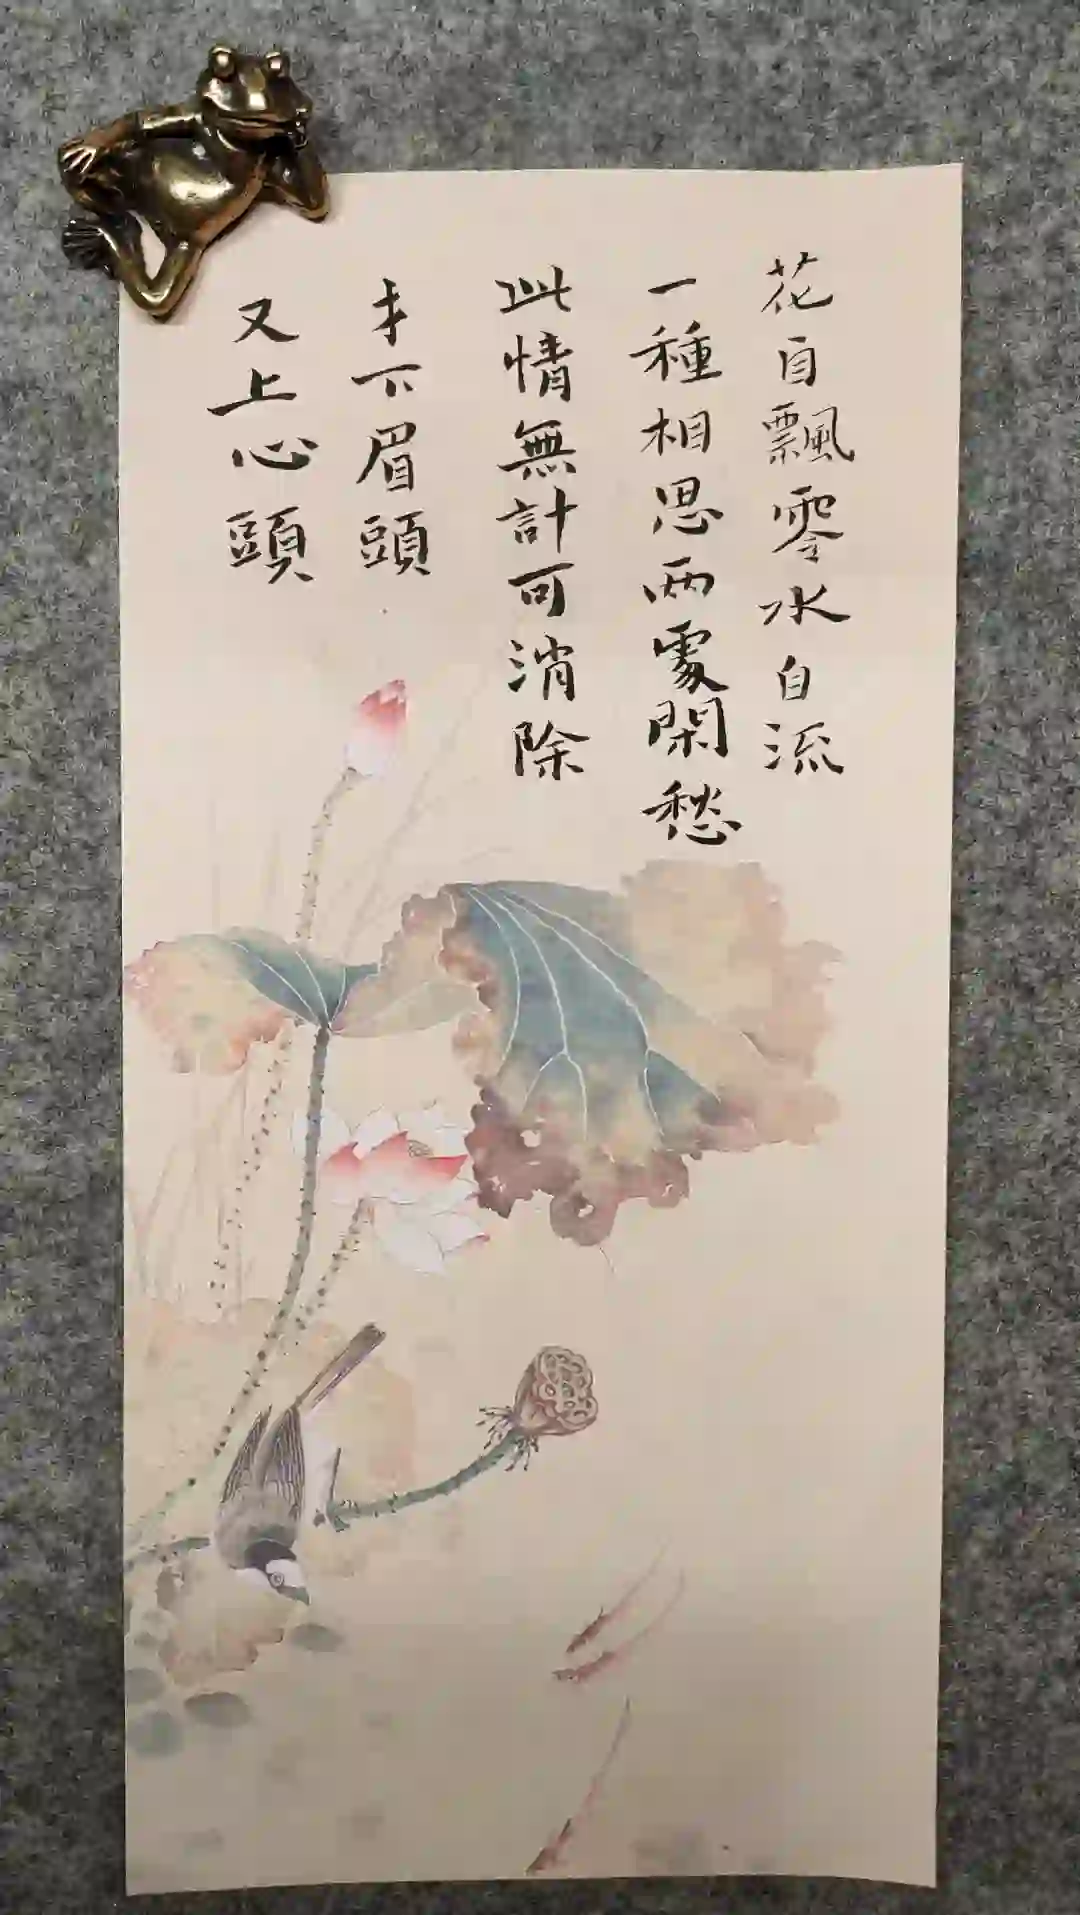 花自飄零水自流
一種相思兩處閑愁
此情無計可消除
才下眉頭
又上心頭